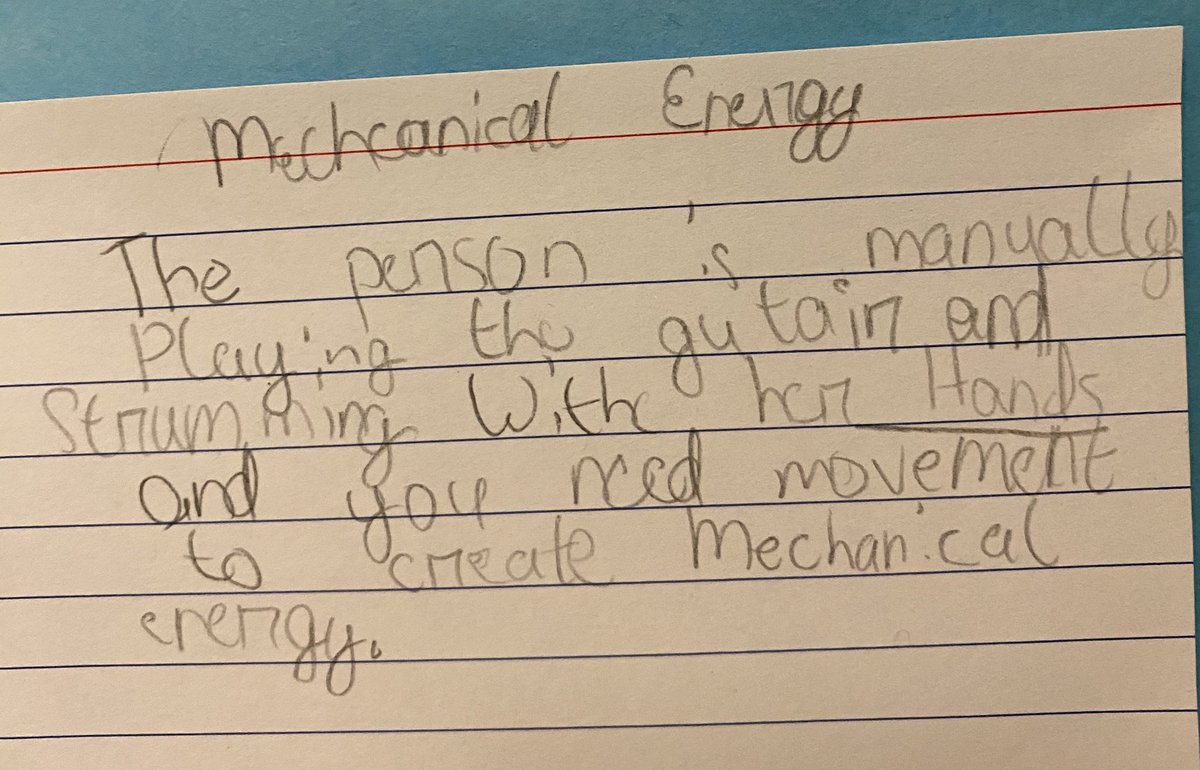 Mechcanical Energy
The person is manually
Playing the gutair and
Strumming With her Hands
and you need movement
to create Mechanical
energy.